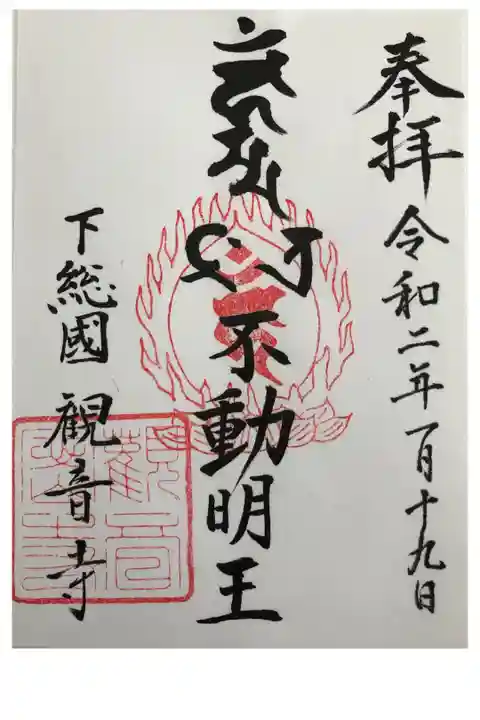 奉拝 令和二年一月十九日
不動明王
下総國 観音寺